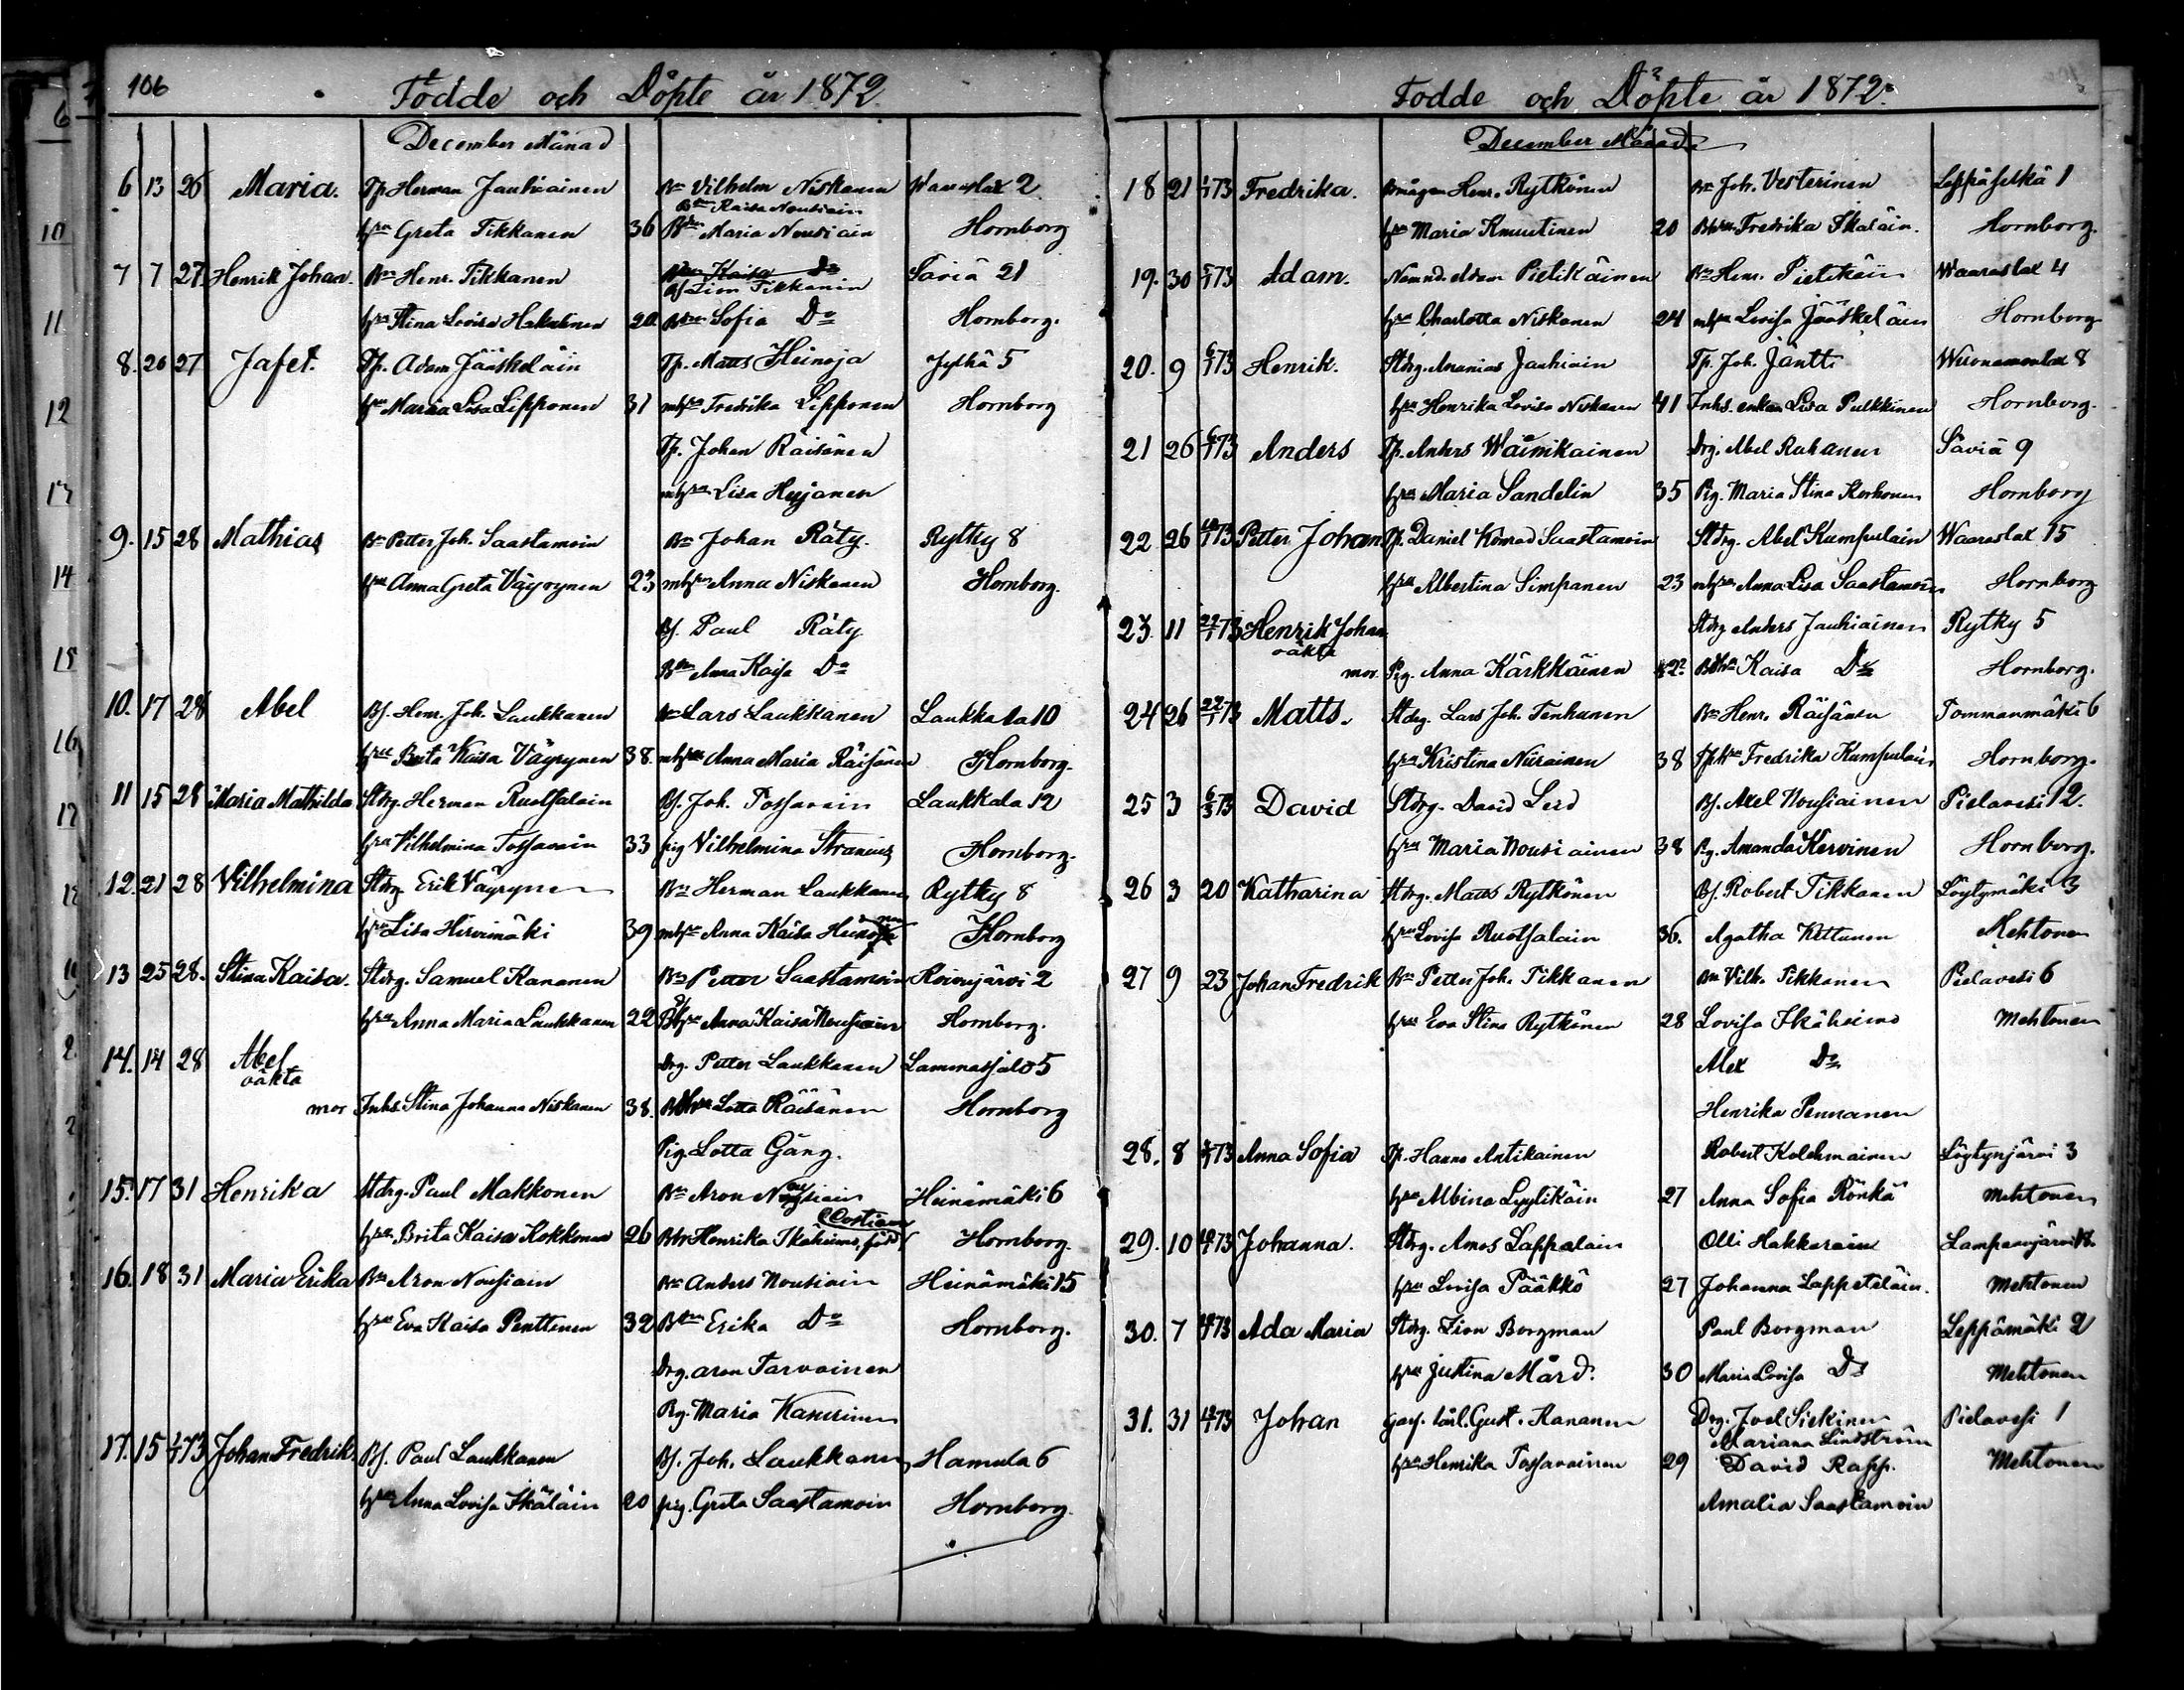 106
Födde och Döpte år 1872.
December Månad
6 13 26 Maria. Tp Herman Jauhiainen Bn Vilhelm Niskanen Waaraslax 2
Bdn Kaisa Nousiain
hru Greta Tikkanen 36 Bdn Maria Nousiain Hornborg
7 7 27 Henrik Johan. Bn Henr. Tikkanen Bdn Kaisa Do Säviä 21
Bs Zion Tikkanen
hru Stina Lovisa Hakulinen 20 Bdn Sofia Do Hornborg.
8. 20 27 Jafet. Tp. Adam Jääskeläin Tp. Matts Heinoja Jylhä 5
hru Maria Lisa Lipponen 31 mhru Fredrika Lipponen Hornborg
Tp. Johan Räisänen
mhru Lisa Hujanen
9. 15 28 Mathias Bn Petter Joh. Saastamoin Bn Johan Räty. Rytky 8
hru Anna Greta Väyrynen 23 mhru Anna Niskanen Hornborg.
Bs. Paul Räty
Bdn Anna Kaisa Do
10. 17 28 Abel Bs. Henr. Joh. Laukkanen Bn Lars Laukkanen Laukkala 10
hru Brita Kaisa Väyrynen 38. mhru Anna Maria Räisänen Hornborg.
11 15 28 Maria Mathilda Stdrg. Herman Ruotsalain Bs. Joh. Tossavain Laukkala 12
hru Vilhelmina Tossavain 33 pig Vilhelmina Stranius Hornborg.
12. 21 28 Vilhelmina Stdrg Erik Väyrynen Bn Herman Laukkanen Rytky 8
hru Lisa Hirvimäki 39 mhru Anna Kaisa Heinonen Hornborg
13 25 28. Stina Kaisa. Stdrg. Samuel Kananen Bn Petter Saastamoin Koivujärvi 2
hru Anna Maria Laukkanen 22 Bhru Anna Kaisa Nousiain Hornborg.
14. 14 28 Abel Drg. Petter Laukkanen Lammassalo 5
oäkta
mor Inhs. Stina Johanna Niskanen 38. Bdhru Lotta Räisänen Hornborg
Pig. Lotta Gång.
15. 17 31 Henrika Stdrg. Paul Makkonen Bn Aron Nousiain Heinämäki 6
hru Brita Kaisa Kokkonen 26 Bhr Henrika Ikäheimo, född Hornborg.
16. 18 31 Maria Erika Bn Aron Nousiain Bn Anders Nousiain Heinämäki 15
hru Eva Kaisa Penttinen 32 Bdn Erika Do Hornborg.
Drg. Aron Tarvainen
Pig. Maria
17. 15 1/1 73 Johan Fredrik Bs. Paul Laukkanen Bs. Joh. Laukkanen Hamula 6
hru Anna Lovisa Ikäläin 20 pig. Greta Saastamoin Hornborg.
Födde och Döpte år 1872.
December Månad
18 21 1/1 73 Fredrika. Bmågen Henr. Rytkönen Bn Joh. Vesterinen Leppäselkä 1
hru Maria Knuutinen 20 Bhru Fredrika Ikäläin. Hornborg.
19. 30 5/1 73 Adam. Nemnd. Adam Pietikäinen Bn Henr. Pietikäin Waaraslax 4
hru Charlotta Niskanen 24 mhru Lovisa Jääskeläin Hornborg
20. 9 6/1 73 Henrik. Stdrg. Ananias Jauhiain Tp. Joh. Jäntti 8
hru Henrika Lovisa Niskanen 41 Inhs. enkan Lisa Pulkkinen Hornborg.
21 26 6/1 73 Anders Tp. Anders Wäinikainen Drg. Abel Ruhanen Säviä 9
hru Maria Sandelin 35 Pig. Maria Stina Korhonen Hornborg
22 26 /1 73 Petter Johan Tp. Daniel Konrad Saastamoin Stdrg. Abel Kumpulain Waaraslax 15
hru Albertina Simpanen 23 mhru Anna Lisa Saastamoin Hornborg
23. 11 22/1 73 Henrik Johan Stdrg Anders Jauhiainen Rytky 5
oäkta
mor. Pig. Anna Kärkkäinen 22 Bdhru Kaisa Do Hornborg.
24 26 22/1 73 Matts. Stdrg. Lars Joh. Tenhunen Bn Henr. Räisänen Tommanmäki 6
hru Kristina Niiranen 38 Tphru Fredrika Kumpulain Hornborg.
25 3 6/3 73 David Stdrg. David Lerd Bs. Axel Nousiainen Pielavesi 12.
hru Maria Nousiainen 38 Pig. Amanda Kervinen Hornborg.
26 3 20 Katharina Stdrg. Matts Rytkönen Bs. Robert Tikkanen Löytymäki 3
hru Lovisa Ruotsalain 36. Agatha Kettunen Mehtonen
27 9 23 Johan Fredrik Bn Petter Joh. Tikkanen Bn Vilh. Tikkanen Pielavesi 6
hru Eva Stina Rytkönen 28 Lovisa Ikäheimo Mehtonen
Alex Do
Henrika Pennanen
28. 8 73 Anna Sofia Tp. Hanns Antikainen Robert Kolehmainen Löytynjärvi 3
hru Albina Lyytikäin 27 Anna Sofia Rönkä Mehtonen
29. 10 73 Johanna. Stdrg. Amos Lappalain Olli Hakkarain Lampaanjärvi
hru Lovisa Pääkkö 27 Johanna Lappeteläin. Mehtonen
30. 7 73 Ada Maria Stdrg. Zion Borgman Paul Borgman Leppämäki 2
hru Justina Mård. 30 Maria Lovisa Do Mehtonen
31. 31 73 Johan Gust. Kananen Drg. Joel Siekinen Pielavesi 1
Mariana Lindström
hru Henrika Tossavainen 29 David Rapp. Mehtonen
Amalia Saastamoin